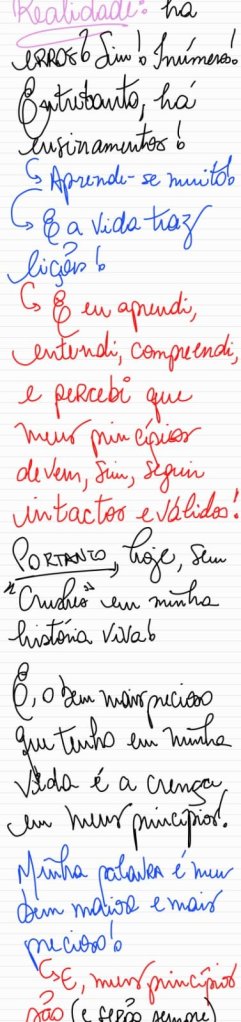 Realidade: há
ERROS? Sim! Inúmeros!
Entretanto, há
ensinamentos!
Aprende-se muito!
E a vida traz
lições!
E eu aprendi,
entendi, compreendi,
e percebi que
meus princípios
devem, sim, seguir
intactos e válidos!
PORTANTO, hoje, sem
"Crushes" em minha
história viva!
E, o bem mais precioso
que tenho em minha
vida é a crença
em meus princípios!
Minha palavra é meu
bem maior e mais
precioso!
E, meus princípios
são (e serão sempre)